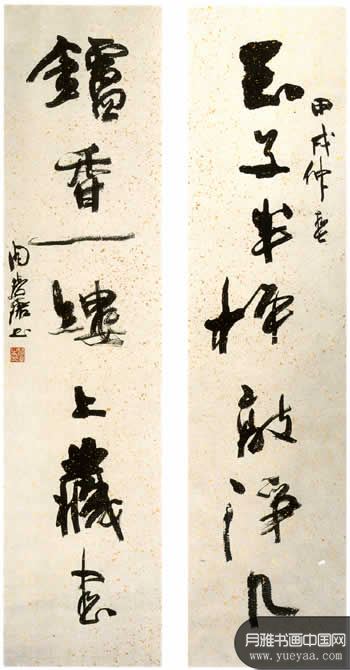 子半枰敲淨几
甲戌仲春
鑪香一縷上藏書
周慧珺書
月雅书画中国网
www.yueyaa.com